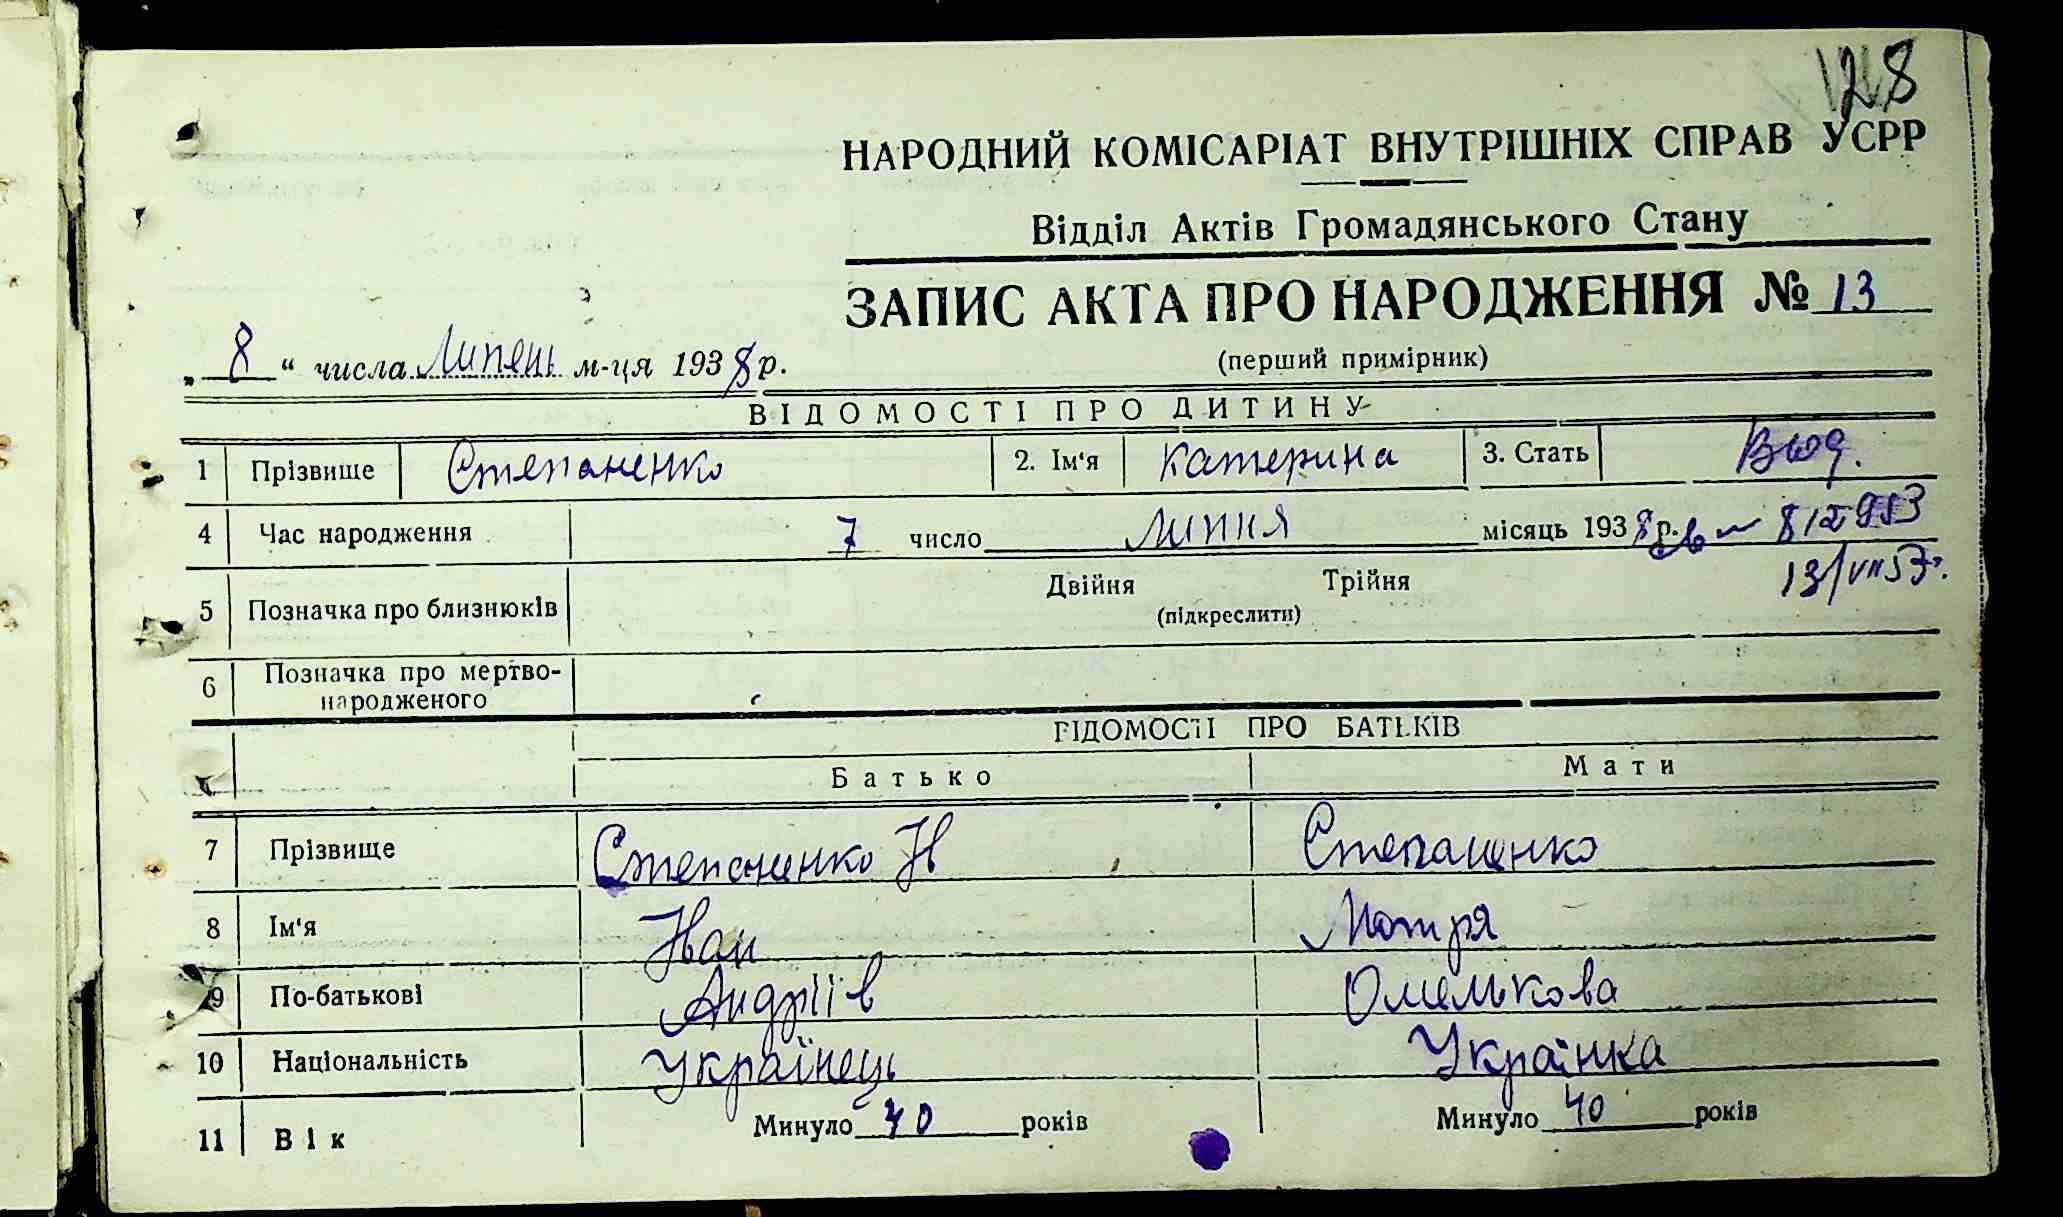 128
НАРОДНИЙ КОМІСАРІАТ ВНУТРІШНІХ СПРАВ УСРР
Відділ Актів Громадянського Стану
ЗАПИС АКТА ПРО НАРОДЖЕННЯ № 13
„ 8 “ числа Липень м-ця 1938 р.
(перший примірник)
ВІДОМОСТІ ПРО ДИТИНУ
1 Прізвище Степаненко 2. Ім‘я Катерина 3. Стать
4 Час народження 7 число липня місяць 1938 р.
5 Позначка про близнюків Двійня Трійня
(підкреслити)
6 Позначка про мертво-
народженого
ВІДОМОСТІ ПРО БАТЬКІВ
Батько Мати
7 Прізвище Степаненко Степаненко
8 Ім‘я Іван Мотря
9 По-батькові Андріїв Омелькова
10 Національність Українець Українка
11 Вік Минуло 40 років Минуло 40 років